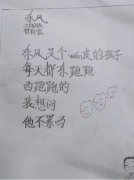 东风
东风是个wán皮的孩子
每天都东跑跑
西跑跑的
我想问
他不累吗